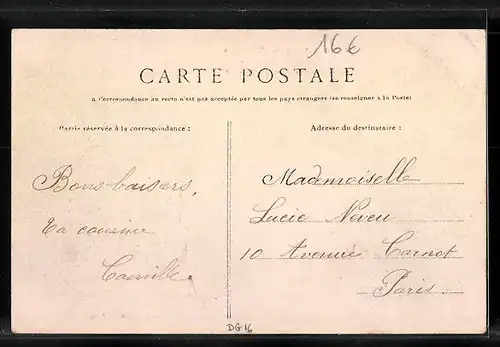 16€
CARTE POSTALE
La Correspondance au recto n'est pas acceptée par tous les pays étrangers (se renseigner à la Poste)
Partie réservée à la correspondance :
Adresse du destinataire :
Bons baisers,
Ta cousine
Camille.
Mademoiselle
Lucie Neveu
10 Avenue Carnot
Paris.
DG16